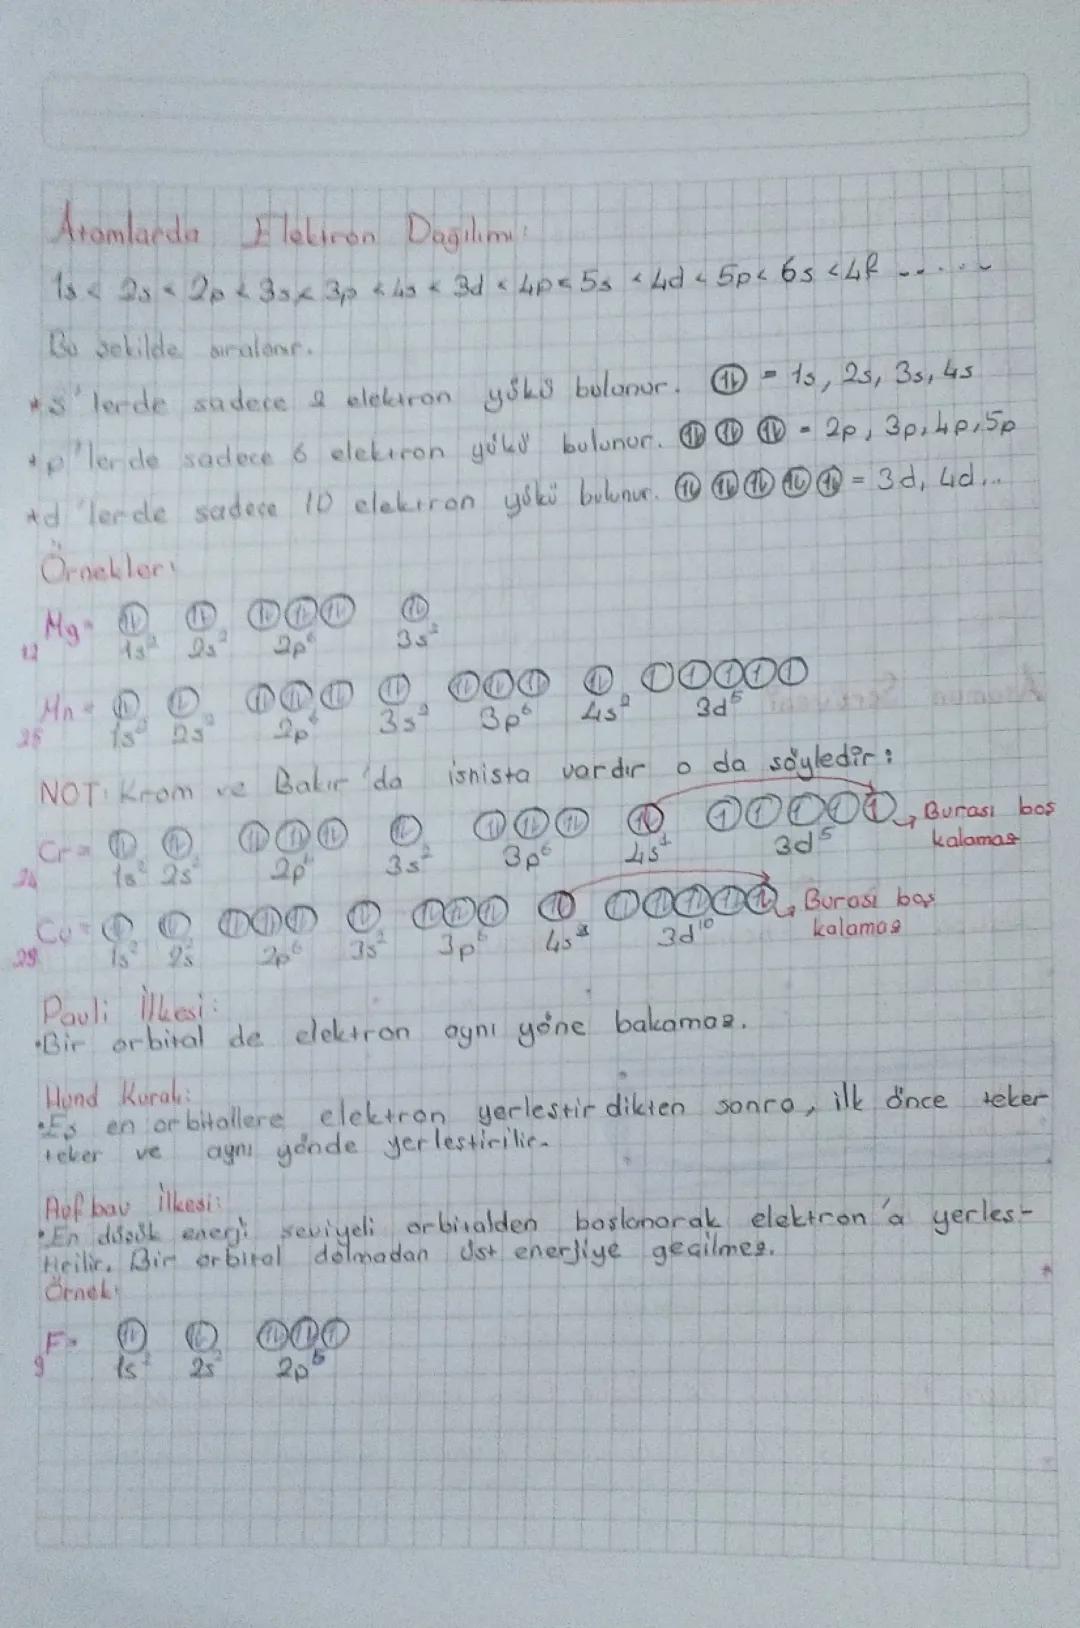 Atomlarda Elektron Dağılımı:
1s < 2s < 2p < 3s < 3p < 4s < 3d < 4p < 5s < 4d < 5p < 6s < 4f ......
Bu şekilde sıralanır.
*s'lerde sadece 2 elektron yükü bulunur. ⥮ = 1s, 2s, 3s, 4s
*p'lerde sadece 6 elektron yükü bulunur. ⥮ ⥮ ⥮ = 2p, 3p, 4p, 5p
*d'lerde sadece 10 elektron yükü bulunur. ⥮ ⥮ ⥮ ⥮ ⥮ = 3d, 4d...
Örnekler:
12Mg = 1s² 2s² 2p⁶ 3s²
25Mn = 1s² 2s² 2p⁶ 3s² 3p⁶ 4s² 3d⁵
NOT: Krom ve Bakır'da isnista vardır o da şöyledir:
24Cr = 1s² 2s² 2p⁶ 3s² 3p⁶ 4s¹ 3d⁵ Burası boş
kalamaz
29Cu = 1s² 2s² 2p⁶ 3s² 3p⁶ 3d¹⁰ Burası boş
kalamaz
Pauli İlkesi:
•Bir orbital de elektron aynı yöne bakamaz.
Hund Kuralı:
•Eş en orbitallere elektron yerleştirdikten sonra, ilk önce teker
teker ve aynı yönde yerleştirilir.
Aufbau İlkesi:
•En düşük enerji seviyeli orbitalden başlanarak elektron'a yerleş-
tirilir. Bir orbital dolmadan üst enerjiye geçilmez.
Örnek:
9F = 1s² 2s² 2p⁵